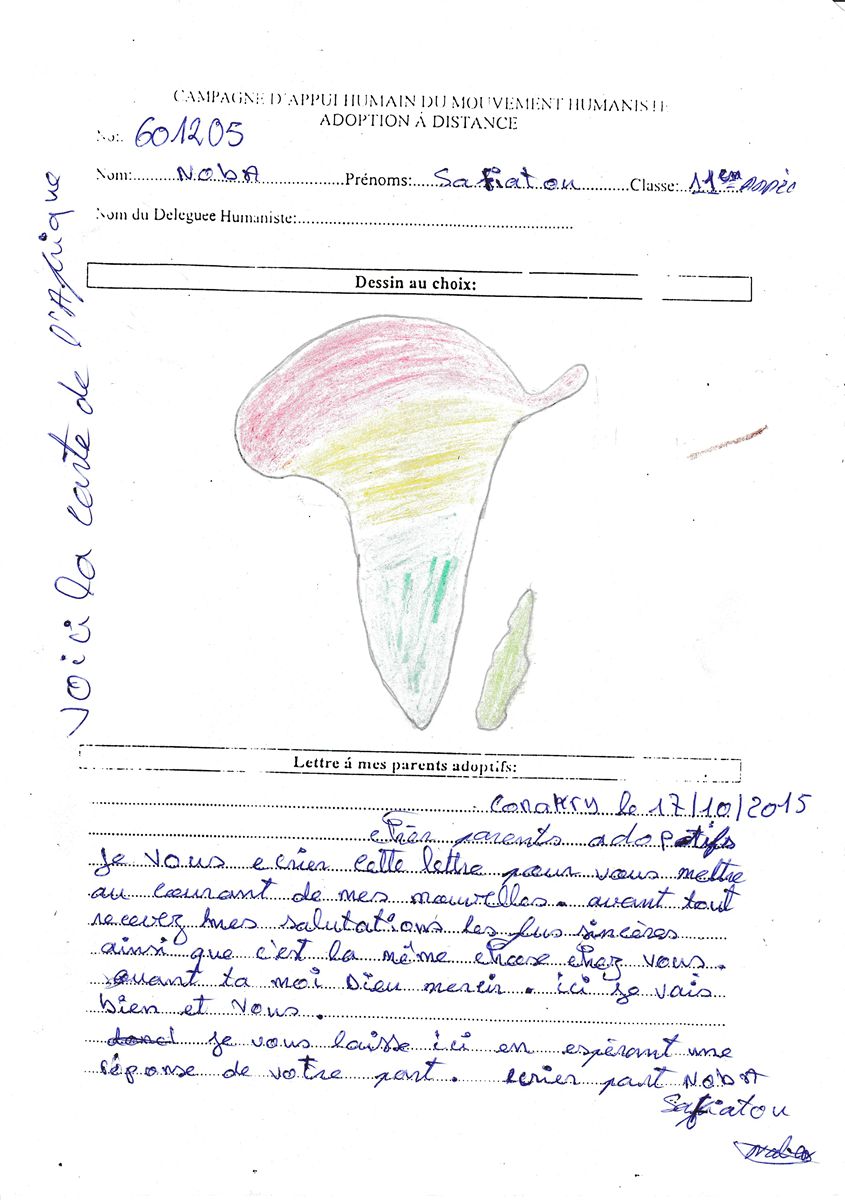 CAMPAGNE D'APPUI HUMAIN DU MOUVEMENT HUMANISTE
ADOPTION À DISTANCE
No: 601205
Nom: NobA Prénoms: Safiatou Classe: 11em Année
Nom du Deleguee Humaniste:
Voici la carte de l'Afrique
Dessin au choix:
Lettre á mes parents adoptifs:
Conakry le 17/10/2015
Chèr parents adoptifs
Je vous ecrier cette lettre pour vous mettre
au courant de mes nouvelles. avant tout
recevez mes salutations les plus sincères
ainsi que c'est la même chose chez vous.
quant ta moi Dieu mercir. ici je vais
bien et vous.
donc je vous laisse ici en espèrant une
réponse de votre part. ecrier part NobA
Safiatou